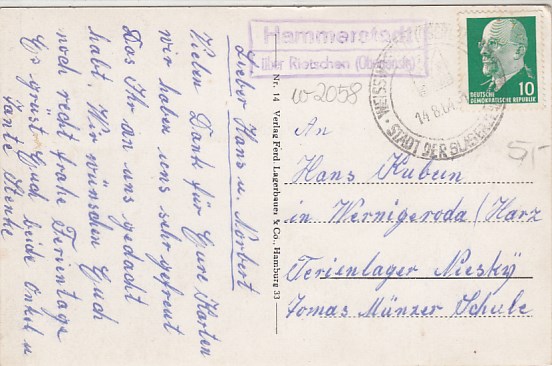 Lieber Hans u. Norbert
Vielen Dank für Eure Karten
wir haben uns sehr gefreut
Das Ihr an uns gedacht
habt. Wir wünschen Euch
noch recht frohe Ferientage
Es grüst Euch beide Onkel u
Tante
Nr. 14 Verlag Ferd. Lagerbauer & Co., Hamburg 33
Hammerstadt
über Rietschen (Oberlaus)
w-2058
WEISSW
14.8.64
STADT DER GLASIN
DEUTSCHE
DEMOKRATISCHE REPUBLIK
10
5,-
An
Hans Kubein
in Wernigeroda/Harz
Ferienlager Niesky
Tomas Münzer Schule